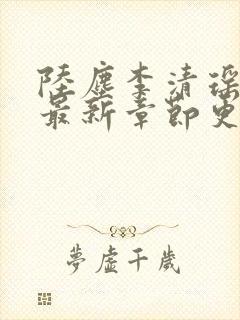 陸塵李清瑶
最新章節更
夢虛千歲